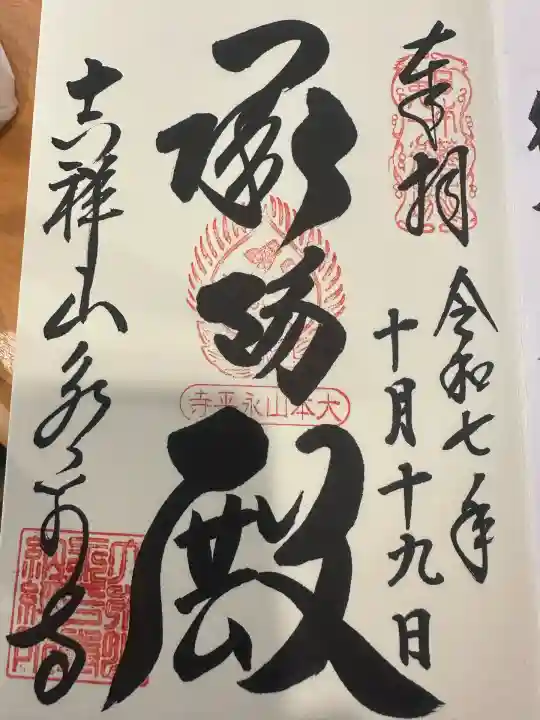 奉拝
令和七年
十月十九日
承陽殿
大本山永平寺
吉祥山永平寺